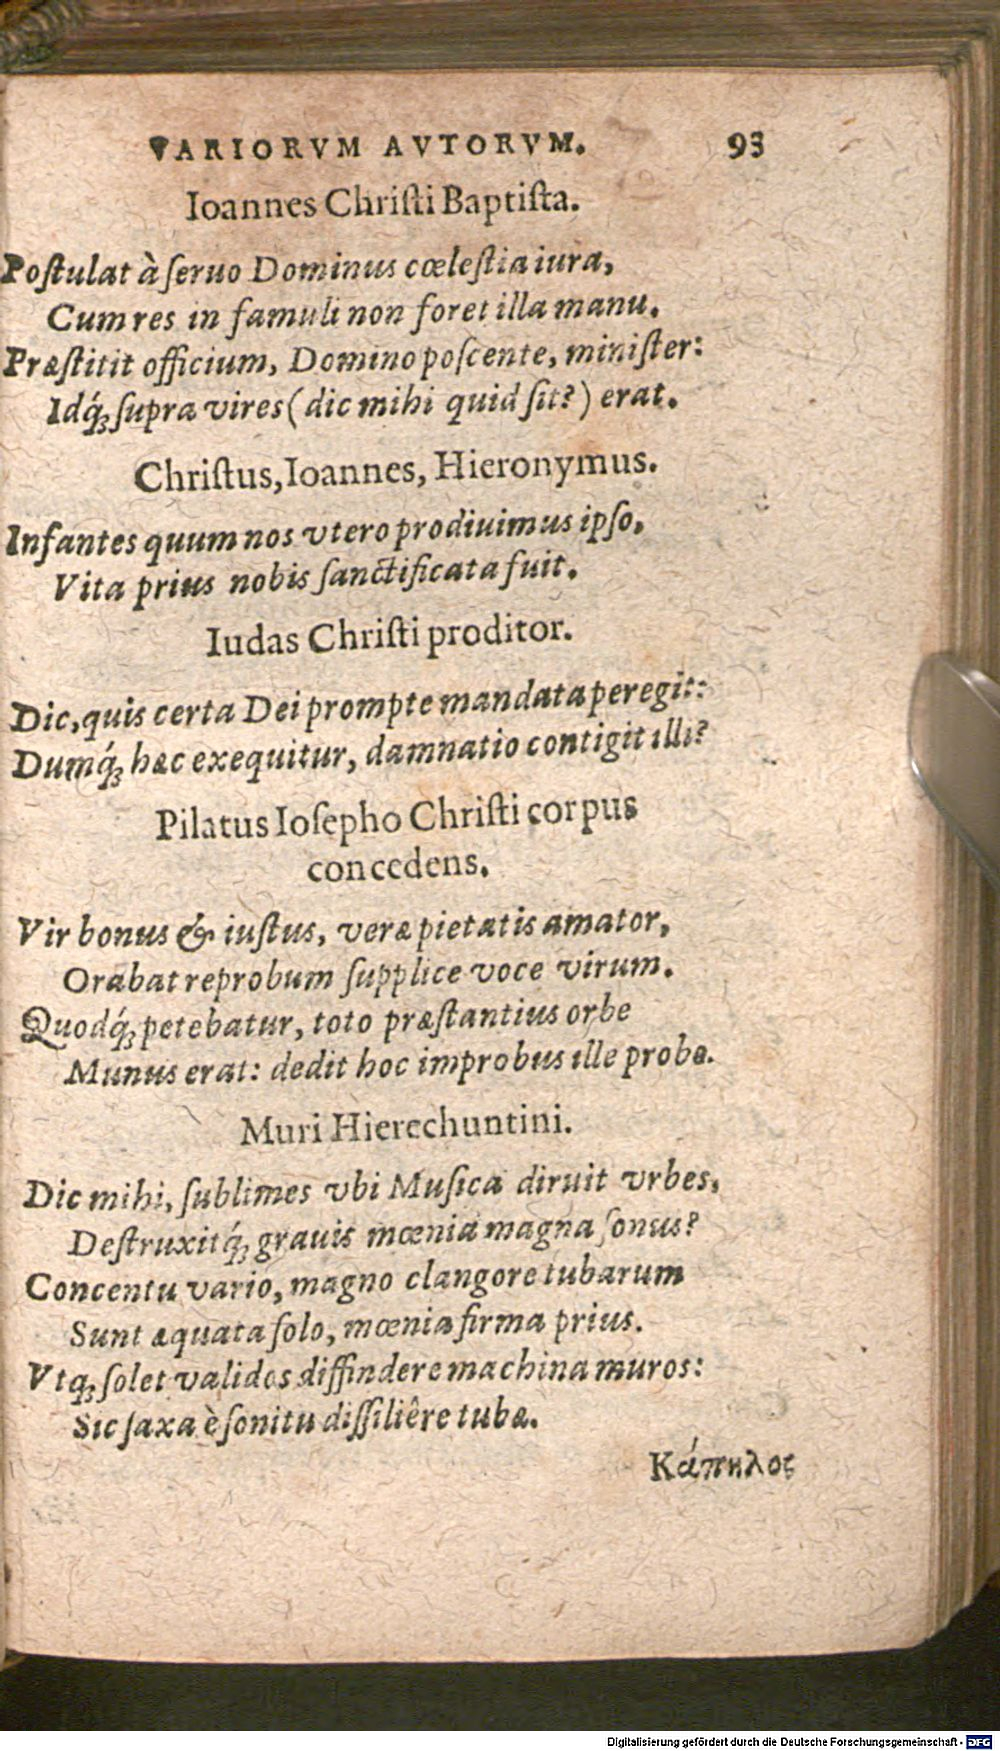 VARIORVM AVTORVM. 93
Ioannes Chriſti Baptiſta.
Poſtulat à ſeruo Dominus cœleſtia iura,
Cum res in famuli non foret illa manu.
Præſtitit officium, Domino poſcente, miniſter:
Idq́ꝫ ſupra vires (dic mihi quid ſit?) erat.
Chriſtus, Ioannes, Hieronymus.
Infantes quum nos vtero prodiuimus ipſo,
Vita prius nobis ſanctificata fuit.
Iudas Chriſti proditor.
Dic, quis certa Dei prompte mandata peregit:
Dumq́ꝫ hæc exequitur, damnatio contigit illi?
Pilatus Ioſepho Chriſti corpus
concedens.
Vir bonus & iuſtus, veræ pietatis amator,
Orabat reprobum ſupplice voce virum.
Quodq́ꝫ petebatur, toto præſtantius orbe
Munus erat: dedit hoc improbus ille probo.
Muri Hierechuntini.
Dic mihi, ſublimes vbi Muſica diruit vrbes,
Deſtruxitq́ꝫ grauis mœnia magna ſonus?
Concentu vario, magno clangore tubarum
Sunt æquata ſolo, mœnia firma prius.
Vtqꝫ ſolet validos diffindere machina muros:
Sic ſaxa è ſonitu diſſiliêre tubæ.
Κάπηλος
Digitalisierung gefördert durch die Deutsche Forschungsgemeinschaft - DFG